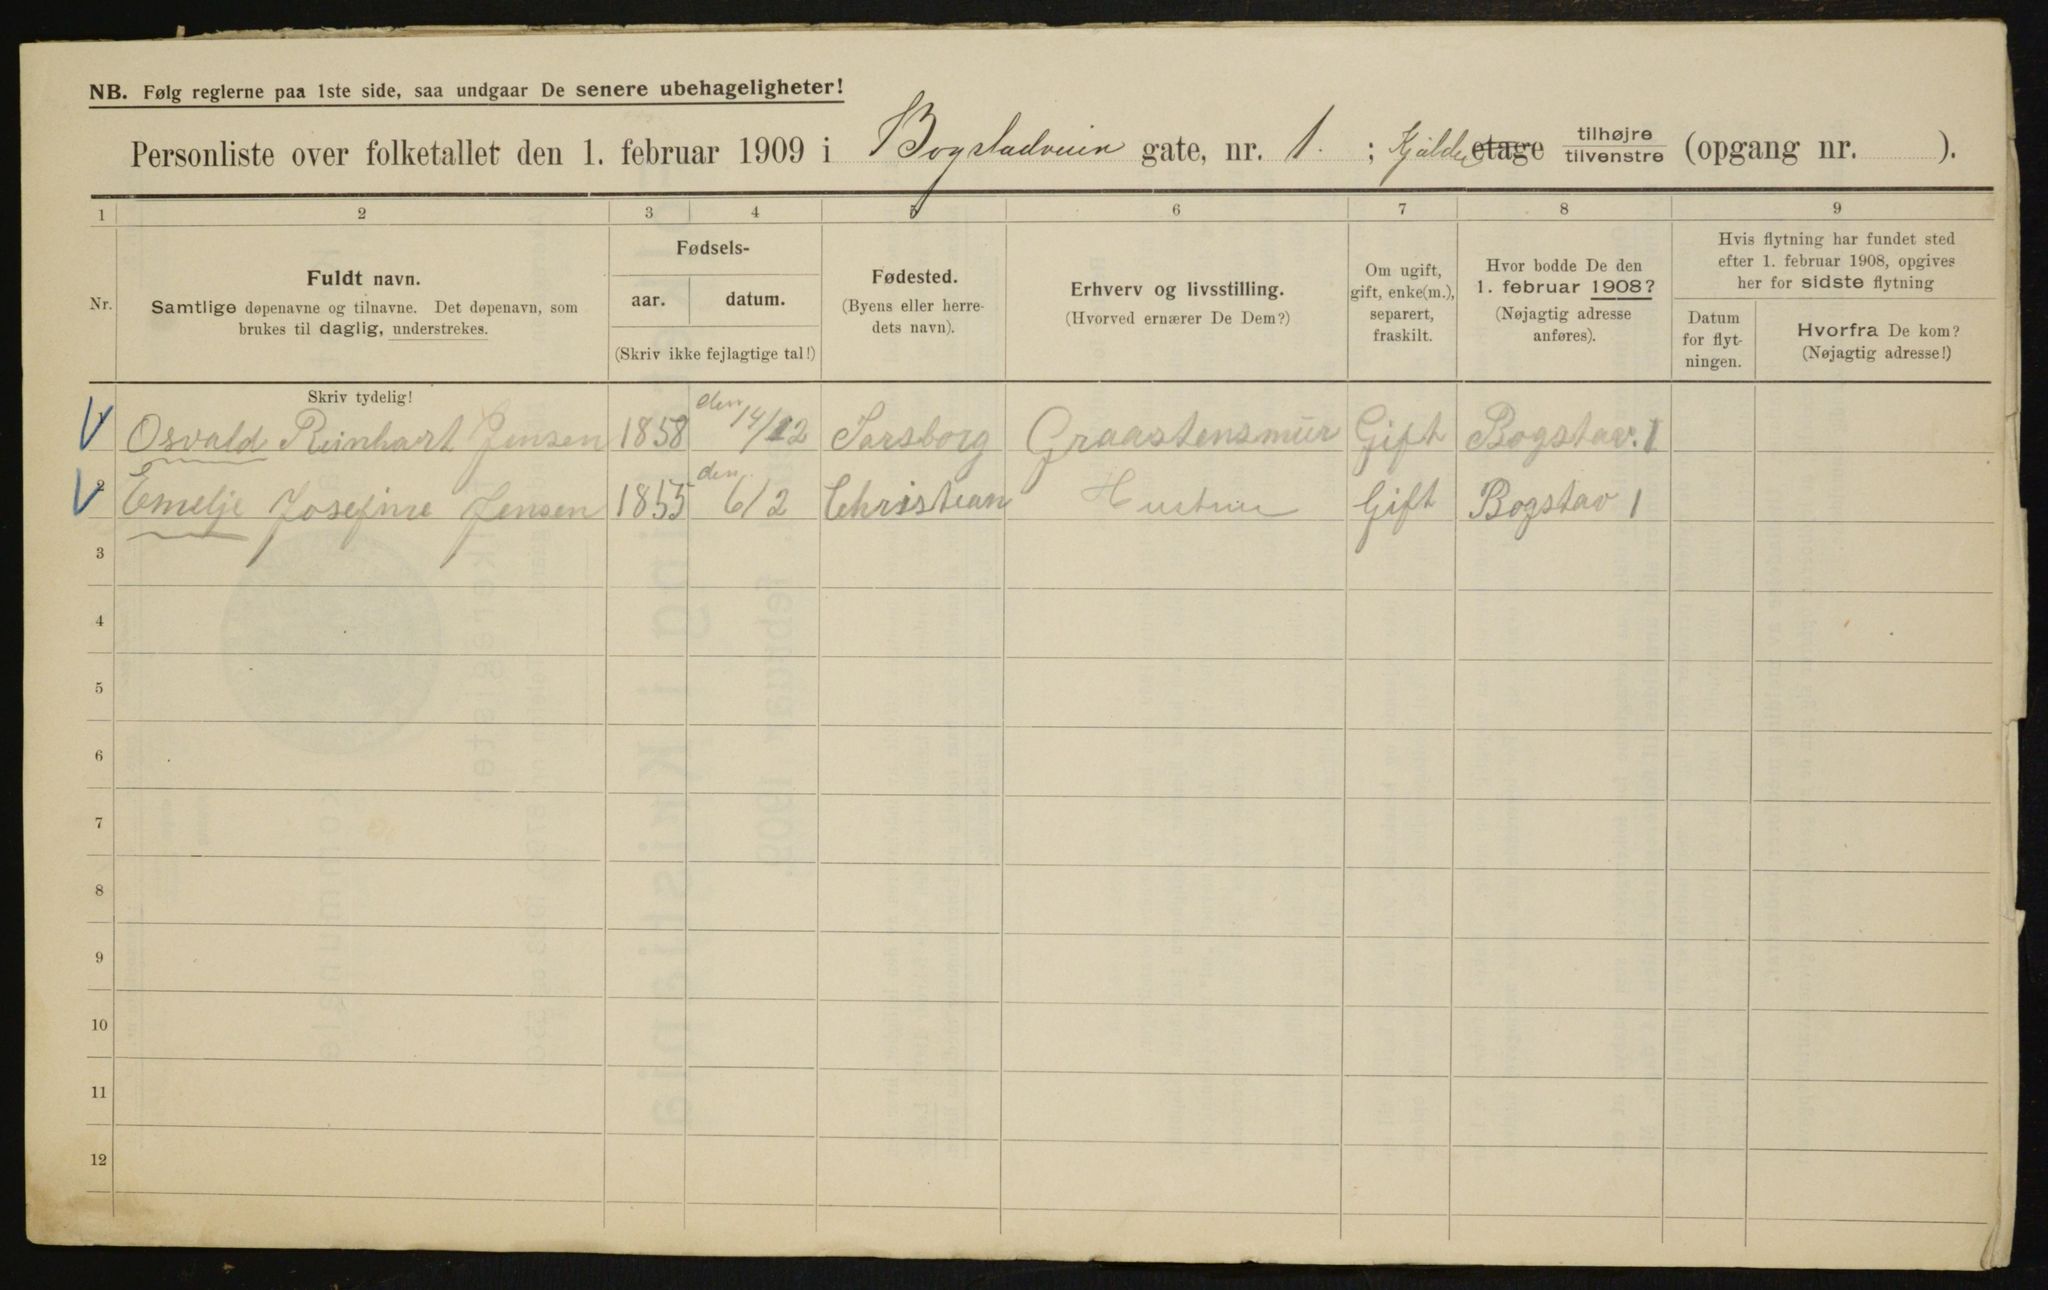 NB. Følg reglerne paa 1ste side, saa undgaar De senere ubehageligheter!
Personliste over folketallet den 1. februar 1909 i Bogstadveien gate, nr. 1. ; Kjælder etage tilhøjre tilvenstre (opgang nr. ).
1 2 3 4 5 6 7 8 9
Nr.
Fuldt navn.
Samtlige døpenavne og tilnavne. Det døpenavn, som
brukes til daglig, understrekes.
Fødsels-
aar. datum.
(Skriv ikke fejlagtige tal!)
Fødested.
(Byens eller herre-
dets navn).
Erhverv og livsstilling.
(Hvorved ernærer De Dem?)
Om ugift,
gift, enke(m.),
separert,
fraskilt.
Hvor bodde De den
1. februar 1908?
(Nøjagtig adresse
anføres).
Hvis flytning har fundet sted
efter 1. februar 1908, opgives
her for sidste flytning
Datum
for flyt-
ningen.
Hvorfra De kom?
(Nøjagtig adresse!)
Skriv tydelig!
Osvald Reinhart Jensen 1858 den 14/12 Sarsborg Graastensmür Gift Bogstav. 1
2 Emelje Josefine Jensen 1855 den 6/2 Christian Hustru Gift Bogstav 1
3
4
5
6
7
8
9
10
11
12